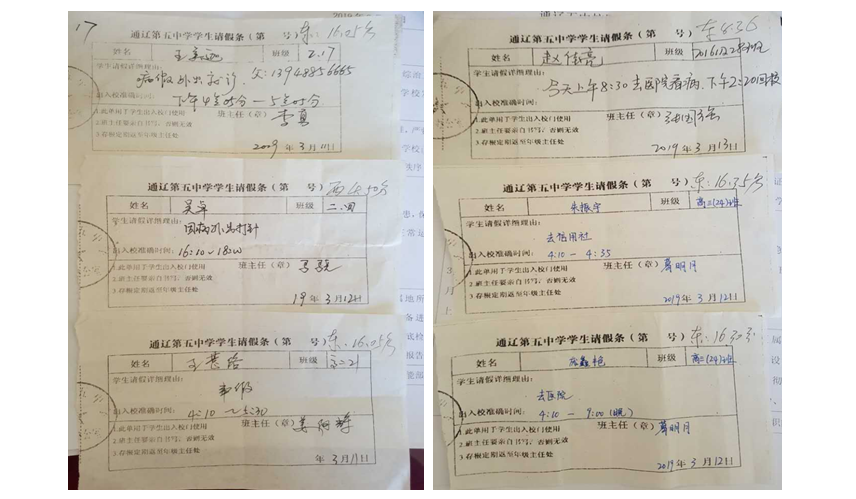 17
通辽第五中学学生请假条（第 号）东：16.05分
姓名 班级 2.17
学生请假详细理由：
病假外出就诊. 父：13948856665
下午4点05分一5点05分
出入校准确时间：
1.此单用于学生出入校门使用 班主任（章）
2.班主任要亲自书写，否则无效
3.存根定期返至年级主任处
2009年3月11日
通辽第五中学学生请假条（第 号）西4.50分
姓名 吴卓 班级
学生请假详细理由：
因病外出打针
出入校准确时间：16:10~18:00
1.此单用于学生出入校门使用 班主任（章）
2.班主任要亲自书写，否则无效
3.存根定期返至年级主任处
19年3月12日
通辽第五中学学生请假条（第 号）东：16.05分
姓名 班级
学生请假详细理由：
事假
出入校准确时间：4:10~5:30
1.此单用于学生出入校门使用 班主任（章）
2.班主任要亲自书写，否则无效
3.存根定期返至年级主任处
年3月11日
通辽第五中学学生请假条（第 号）东8:36
姓名 赵伟亮 班级
学生请假详细理由：
今天上午8:30去医院看病，下午2:20回校
出入校准确时间：
1.此单用于学生出入校门使用 班主任（章）
2.班主任要亲自书写，否则无效
3.存根定期返至年级主任处
2019年3月13日
通辽第五中学学生请假条（第 号）东：16.35分
姓名 朱振宇 班级 高二(24)班
学生请假详细理由：
去信用社
出入校准确时间：4:10 — 4:35
1.此单用于学生出入校门使用 班主任（章）葛明月
2.班主任要亲自书写，否则无效
3.存根定期返至年级主任处
2019年3月12日
通辽第五中学学生请假条（第 号）东：16.30分
姓名 班级 高二(24)班
学生请假详细理由：
去医院
出入校准确时间：4:10 — 9:00(晚)
1.此单用于学生出入校门使用 班主任（章）葛明月
2.班主任要亲自书写，否则无效
3.存根定期返至年级主任处
2019年3月12日